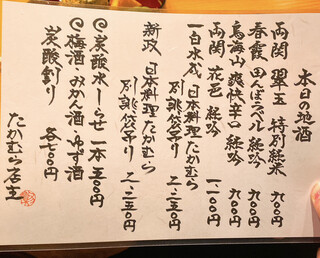 本日の地酒
両関 翠玉 特別純米 九〇〇
春霞 田んぼラベル 純吟 九〇〇
鳥海山 爽快辛口 純吟 九〇〇
両関 花邑 純吟 一、一〇〇
一白水成 日本料理たかむら
別誂 袋吊り 二、二五〇円
新政 日本料理たかむら
別誂 袋吊り 二、二五〇円
炭酸水しらせ 一本 五〇〇円
梅酒・みかん酒・ゆず酒
炭酸割り 各七〇〇円
たかむら店主